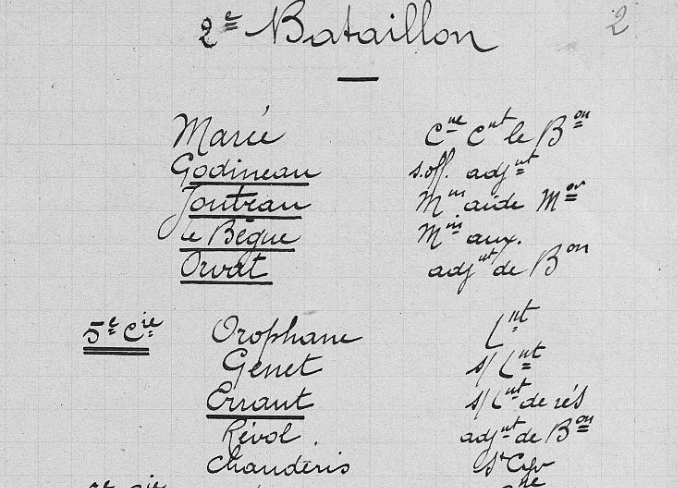 2
2e Bataillon
Marié Cne Cnt le Bon
Godineau s.off. adjnt
Joutrau Min aide Mor
le Bègue Min aux.
Orvat adjnt de Bon
5e Cie Orophane Lnt
Genet s/Lnt
Erraut s/Lnt de rés
Révol. adjnt de Bon
Chanderis St Cyr